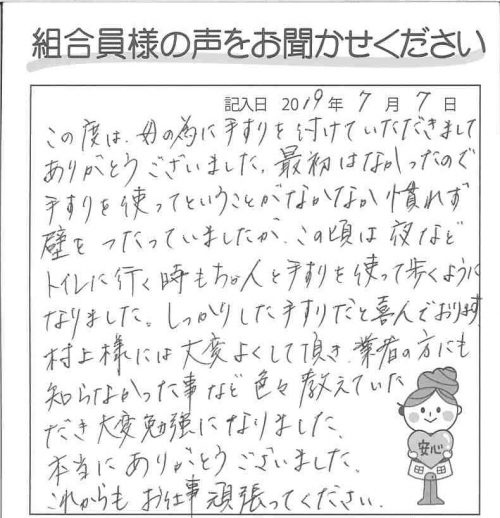 組合員様の声をお聞かせください
記入日 2019年 7月 7日
この度は、母の為に手すりを付けていただきまして
ありがとうございました。最初はなかったので
手すりを使ってということがなかなか慣れず
壁をつたっていましたが、この頃は夜など
トイレに行く時もちゃんと手すりを使って歩くように
なりました。しっかりした手すりだと喜んでおります
村上様には大変よくして頂き、業者の方にも
知らなかった事など色々教えていた
だき大変勉強になりました。
本当にありがとうございました。
これからもお仕事頑張ってください。
安心